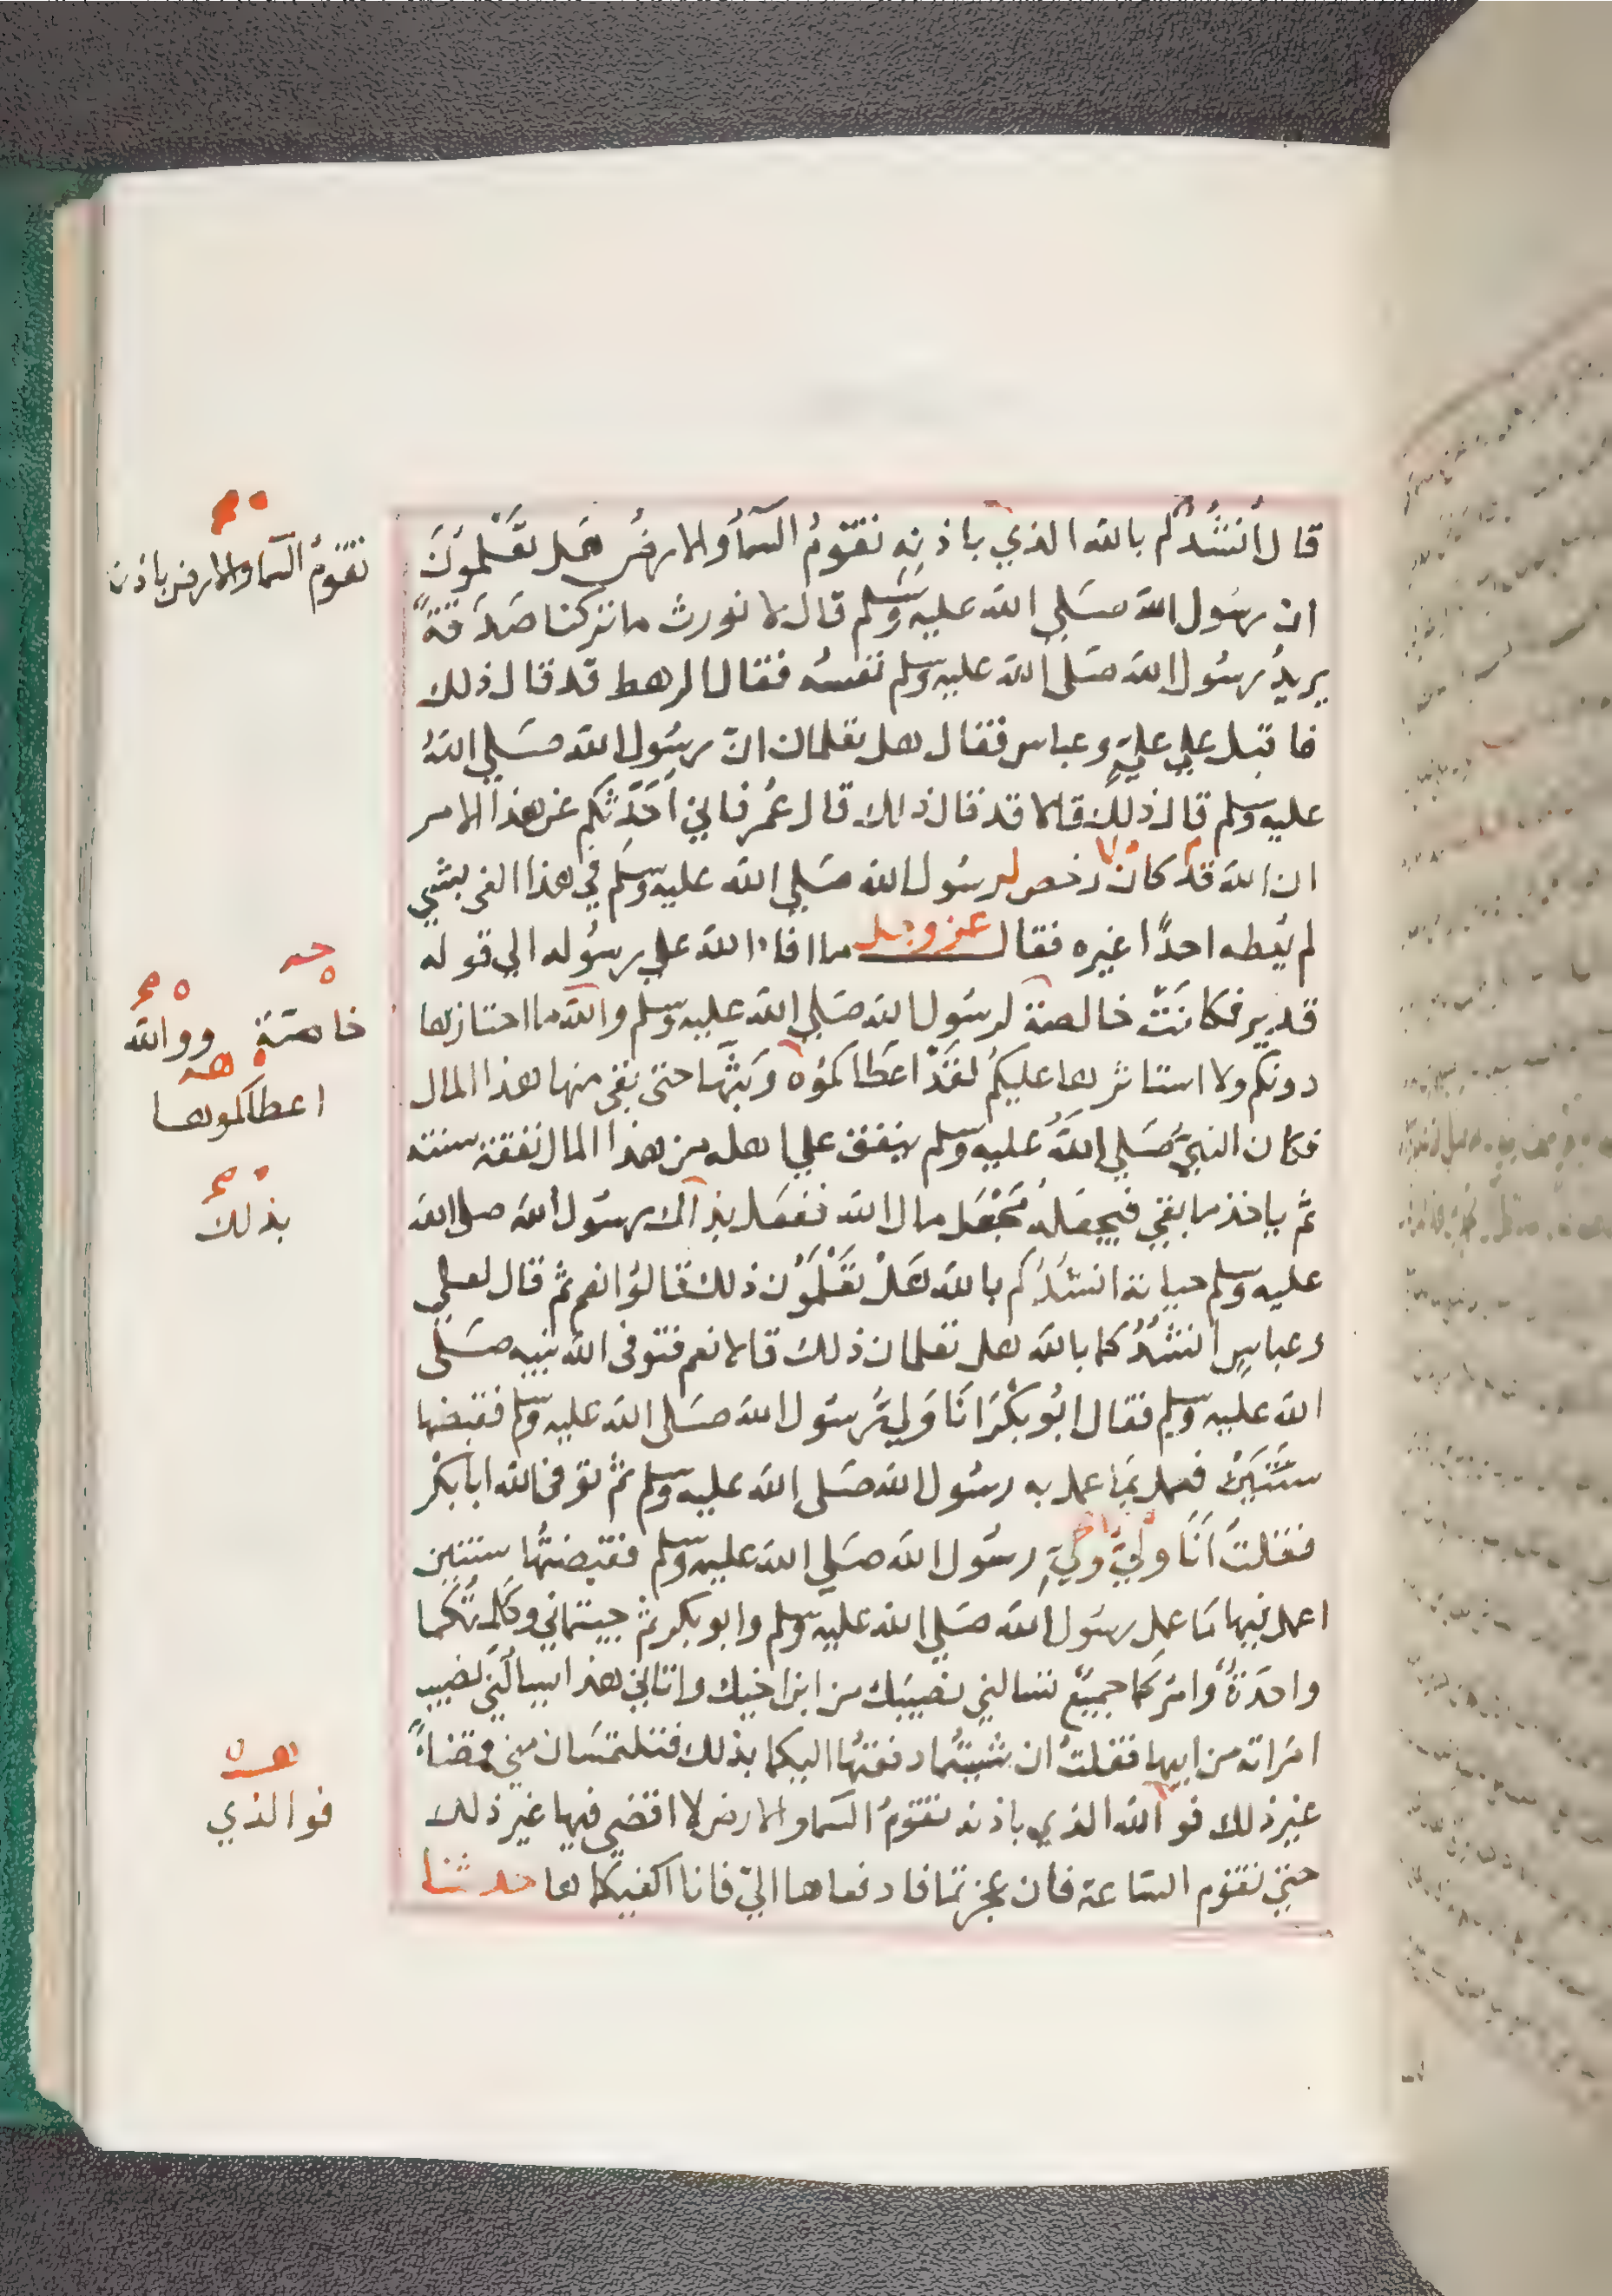 قال أنشدكم بالله الذي باذنه تقوم السماء والارض هل تعلمون
ان رسول الله صلى الله عليه وسلم قال لا نورث ما تركنا صدقة
يريد رسول الله صلى الله عليه وسلم نفسه فقال الرهط قد قال ذلك
فاقبل علي علي وعباس فقال هل تعلمان ان رسول الله صلي الله
عليه وسلم قال ذلك قالا قد قال ذلك قال عمر فاني احدثكم عن هذا الامر
ان الله قد كان خص لرسول الله صلي الله عليه وسلم في هذا الفي بشي
لم يعطه احدا غيره فقال عز وجل ما افاء الله علي رسوله الي قوله
قدير فكانت خالصة لرسول الله صلي الله عليه وسلم والله ما احتازها
دونكم ولا استاثر بها عليكم لقد اعطاكموه وبثها حتى بقي منها هذا المال
فكان النبي صلي الله عليه وسلم ينفق علي اهله من هذا المال نفقة سنته
ثم ياخذ ما بقي فيجعله مجعل مال الله ففعل بذاك رسول الله صلى الله
عليه وسلم حياته انشدكم بالله هل تعلمون ذلك قالوا نعم ثم قال لعلي
وعباس انشدكما بالله هل تعلمان ذلك قالا نعم فتوفى الله نبيه صلى
الله عليه وسلم فقال ابو بكر انا ولي رسول الله صلى الله عليه وسلم فقبضها
سنتين فعمل بما عمل به رسول الله صلى الله عليه وسلم ثم توفى الله ابا بكر
فقلت انا ولي ولي رسول الله صلي الله عليه وسلم فقبضتها سنتين
اعمل فيها ما عمل رسول الله صلي الله عليه وسلم وابو بكر ثم جيتماني وكلمتكما
واحدة وامركما جميع تسالني نصيبك من ابن اخيك واتاني هذا يسالني نصيب
امراته من ابيها فقلت ان شيتما دفعتها اليكما بذلك فتلتمسان مني قضاء
غير ذلك فو الله الذي باذنه تقوم السماء والارض لا اقضي فيها غير ذلك
حتى تقوم الساعة فان عجزتما فادفعاها الي فانا اكفيكماها حدثنا
تقوم السماء والارض باذنه
خاصة ووالله
اعطاكموها
بذلك
فوالذي